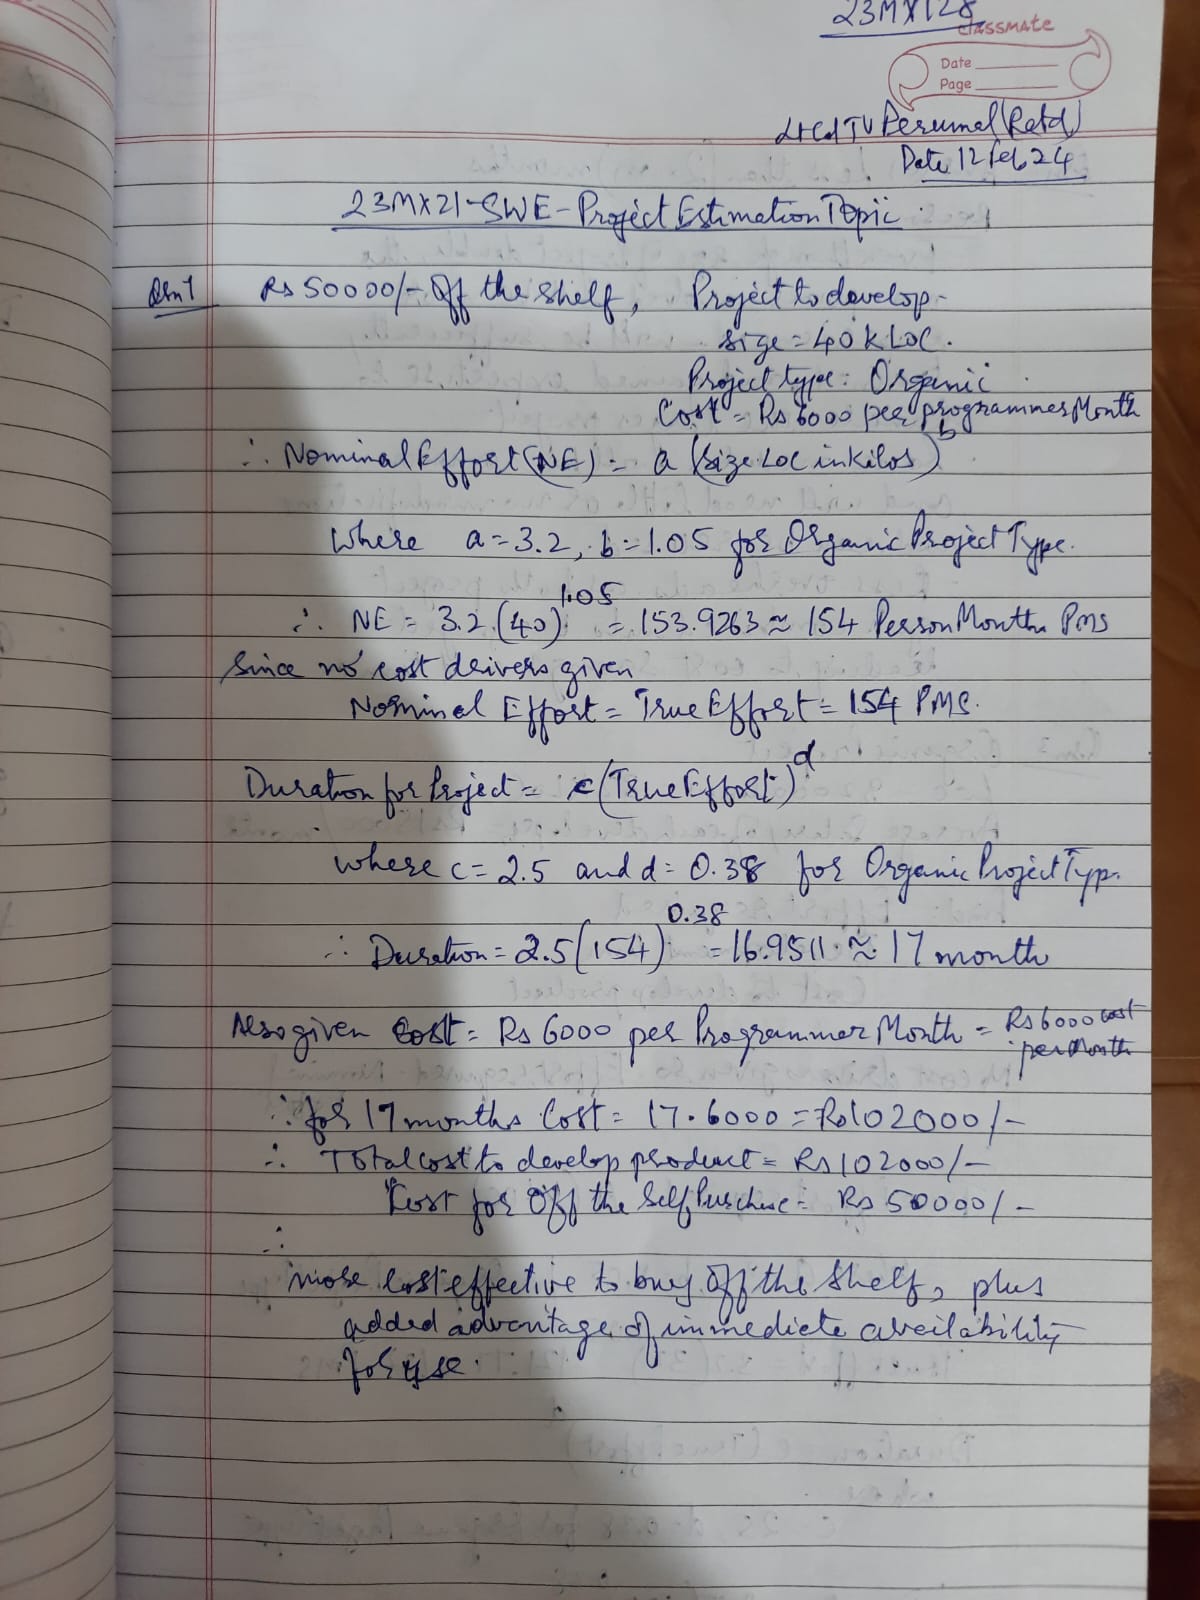 23MX128
classmate
Date
Page
Lt Col TV Perumal (Retd)
Date 12 Feb 24
23MX21-SWE-Project Estimation Topic
Qsn1 Rs 50000/- Off the shelf, Project to develop-
size = 40 KLOC.
Project type: Organic
Cost = Rs 6000 per programmer Month
∴ Nominal Effort (NE) = a (Size LOC in kilos)^b
Where a=3.2, b=1.05 for Organic Project Type.
∴ NE = 3.2 (40)^1.05 = 153.9263 ≈ 154 Person Months PMs
Since no cost drivers given
Nominal Effort = True Effort = 154 PMs.
Duration for Project = c (True Effort)^d
where c = 2.5 and d = 0.38 for Organic Project Typ.
∴ Duration = 2.5 (154)^0.38 = 16.9511 ≈ 17 month
Also given Cost = Rs 6000 per Programmer Month = Rs 6000 cost
per Month
∴ for 17 months Cost = 17.6000 = Rs 102000/-
∴ Total cost to develop product = Rs 102000/-
Cost for Off the Self Purchase = Rs 50000/-
∴
more cost effective to buy off the shelf, plus
added advantage of immediate availability
for use.